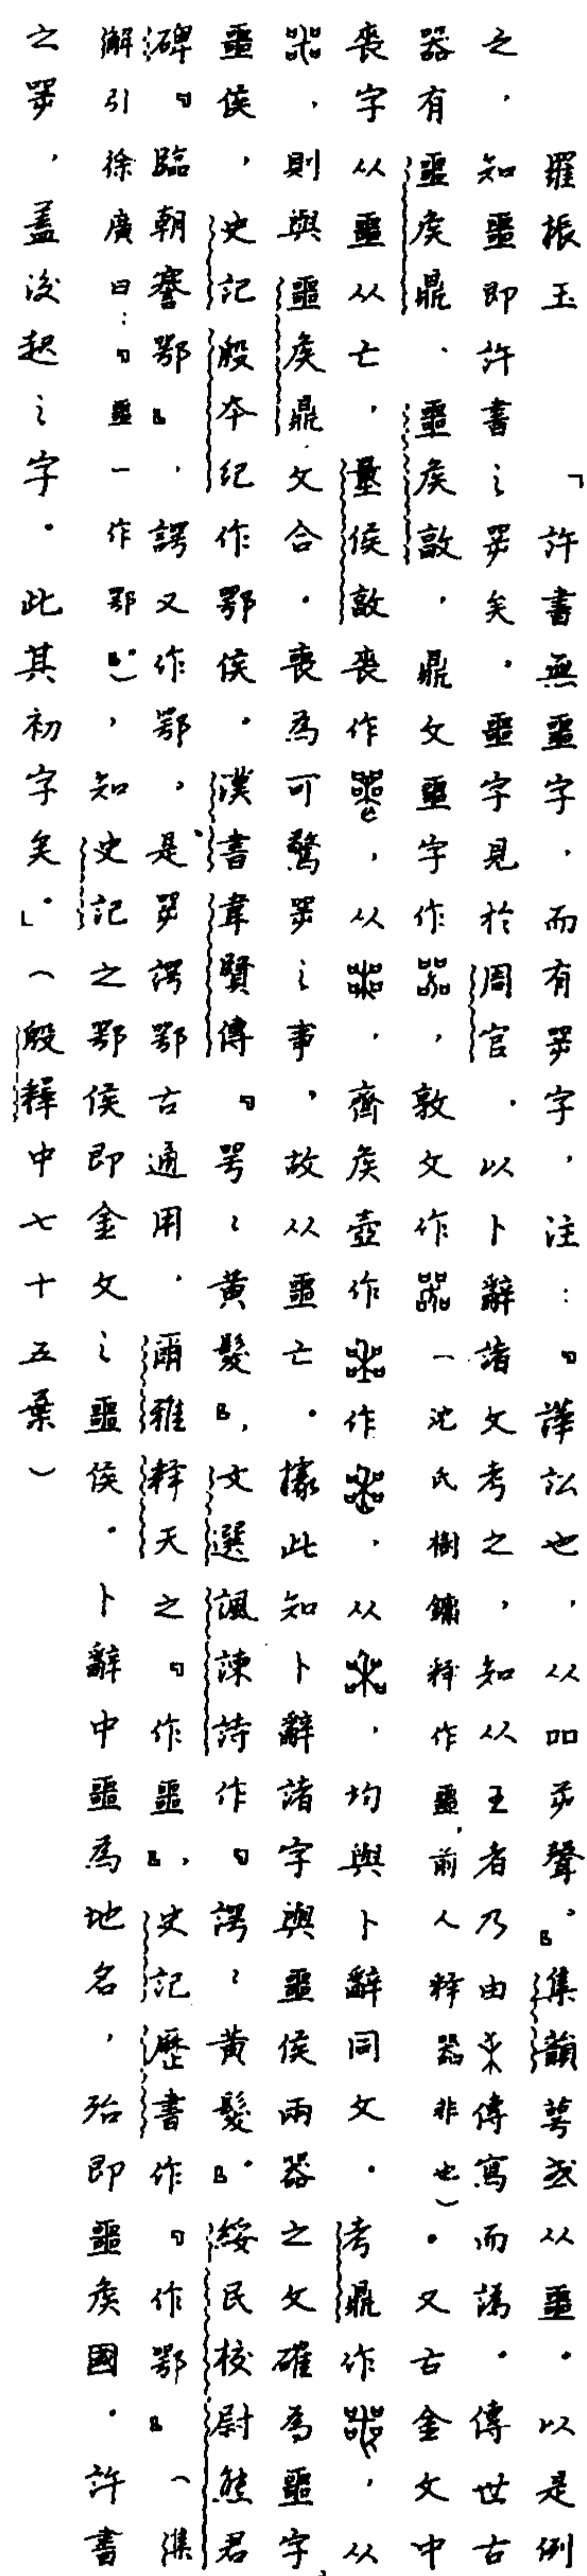 羅振玉「許書無噩字，而有咢字，注：『譁訟也，从吅屰聲。』集韻萼或从噩。以是例
之，知噩即許書之咢矣。噩字見於周官。以卜辭諸文考之，知从王者乃由傳寫而譌。傳世古
器有噩矦鼎、噩矦敦，鼎文噩字作，敦文作（沈氏樹鏞釋作噩，前人釋器非也）。又古金文中
喪字从噩从亡，量侯敦喪作，从，齊矦壺作作，从，均與卜辭同文。考鼎作，从
，則與噩矦鼎文合。喪為可驚咢之事，故从噩亡。據此知卜辭諸字與噩侯兩器之文確為噩字，
噩侯，史記殷本紀作鄂侯。漢書韋賢傳『咢〻黃髮』，文選諷諫詩作『諤〻黃髮』。綏民校尉熊君
碑『臨朝謇鄂』，諤又作鄂，是咢諤鄂古通用，爾雅釋天之『作噩』，史記歷書作『作鄂』（集
解引徐廣曰：『噩一作鄂』），知史記之鄂侯即金文之噩侯。卜辭中噩為地名，殆即噩矦國。許書
之咢，蓋後起之字。此其初字矣。」（殷釋中七十五葉）